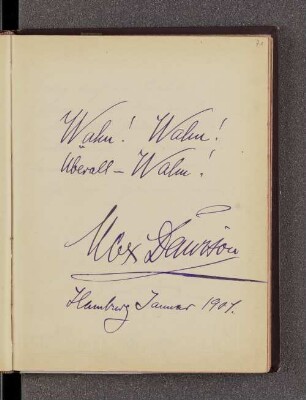 Wahn! Wahn!
Überall – Wahn!
Max Dawison
Hamburg Januar 1901.